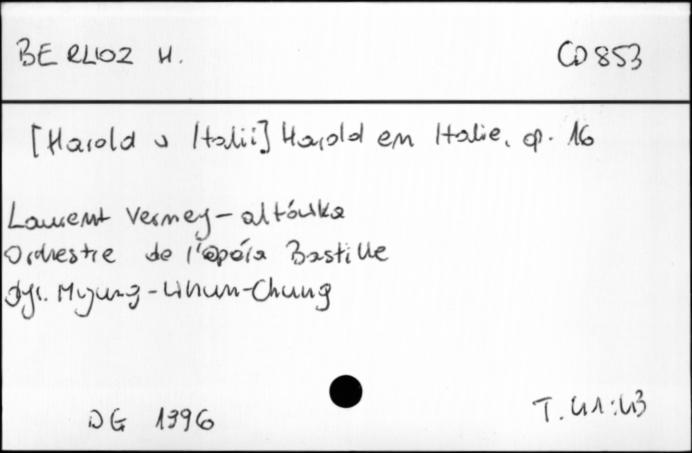 BERLIOZ H. CD 853
[Harold v Italii] Harold en Italie, op. 16
Laurent Verney - altówka
Orchestre de l'opéra Bastille
dyr. Myung-Whun-Chung
DG 1996
T. 41:43